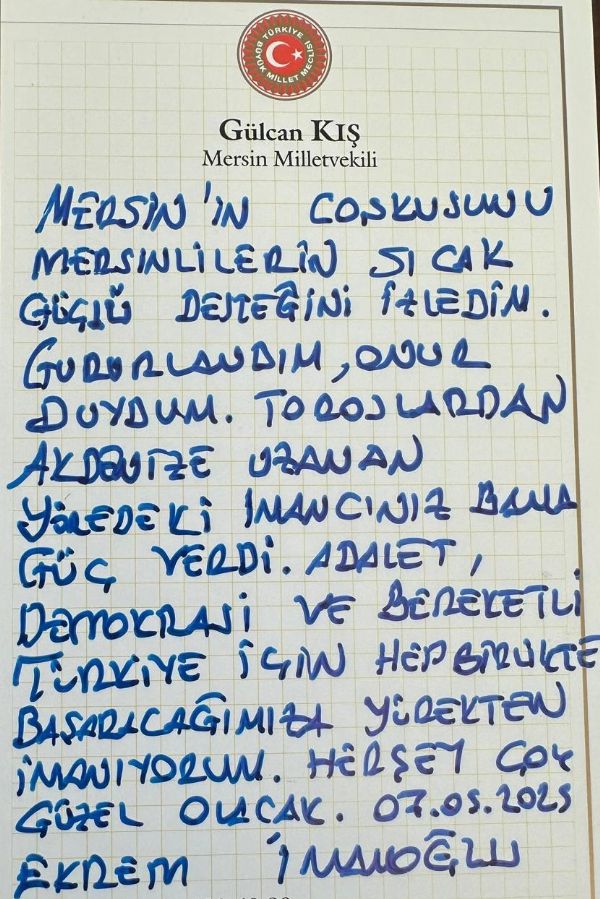 TÜRKİYE BÜYÜK MİLLET MECLİSİ
Gülcan KIŞ
Mersin Milletvekili
MERSİN'İN COŞKUSUNU
MERSİNLİLERİN SICAK
GÜÇLÜ DESTEĞİNİ İZLEDİM.
GURURLANDIM, ONUR
DUYDUM. TOROSLARDAN
AKDENİZE UZANAN
YÖREDEKİ İNANCINIZ BANA
GÜÇ VERDİ. ADALET,
DEMOKRASİ VE BEREKETLİ
TÜRKİYE İÇİN HEP BİRLİKTE
BAŞARACAĞIMIZA YÜREKTEN
İNANIYORUM. HERŞEY ÇOK
GÜZEL OLACAK. 07.05.2025
EKREM İMAMOĞLU